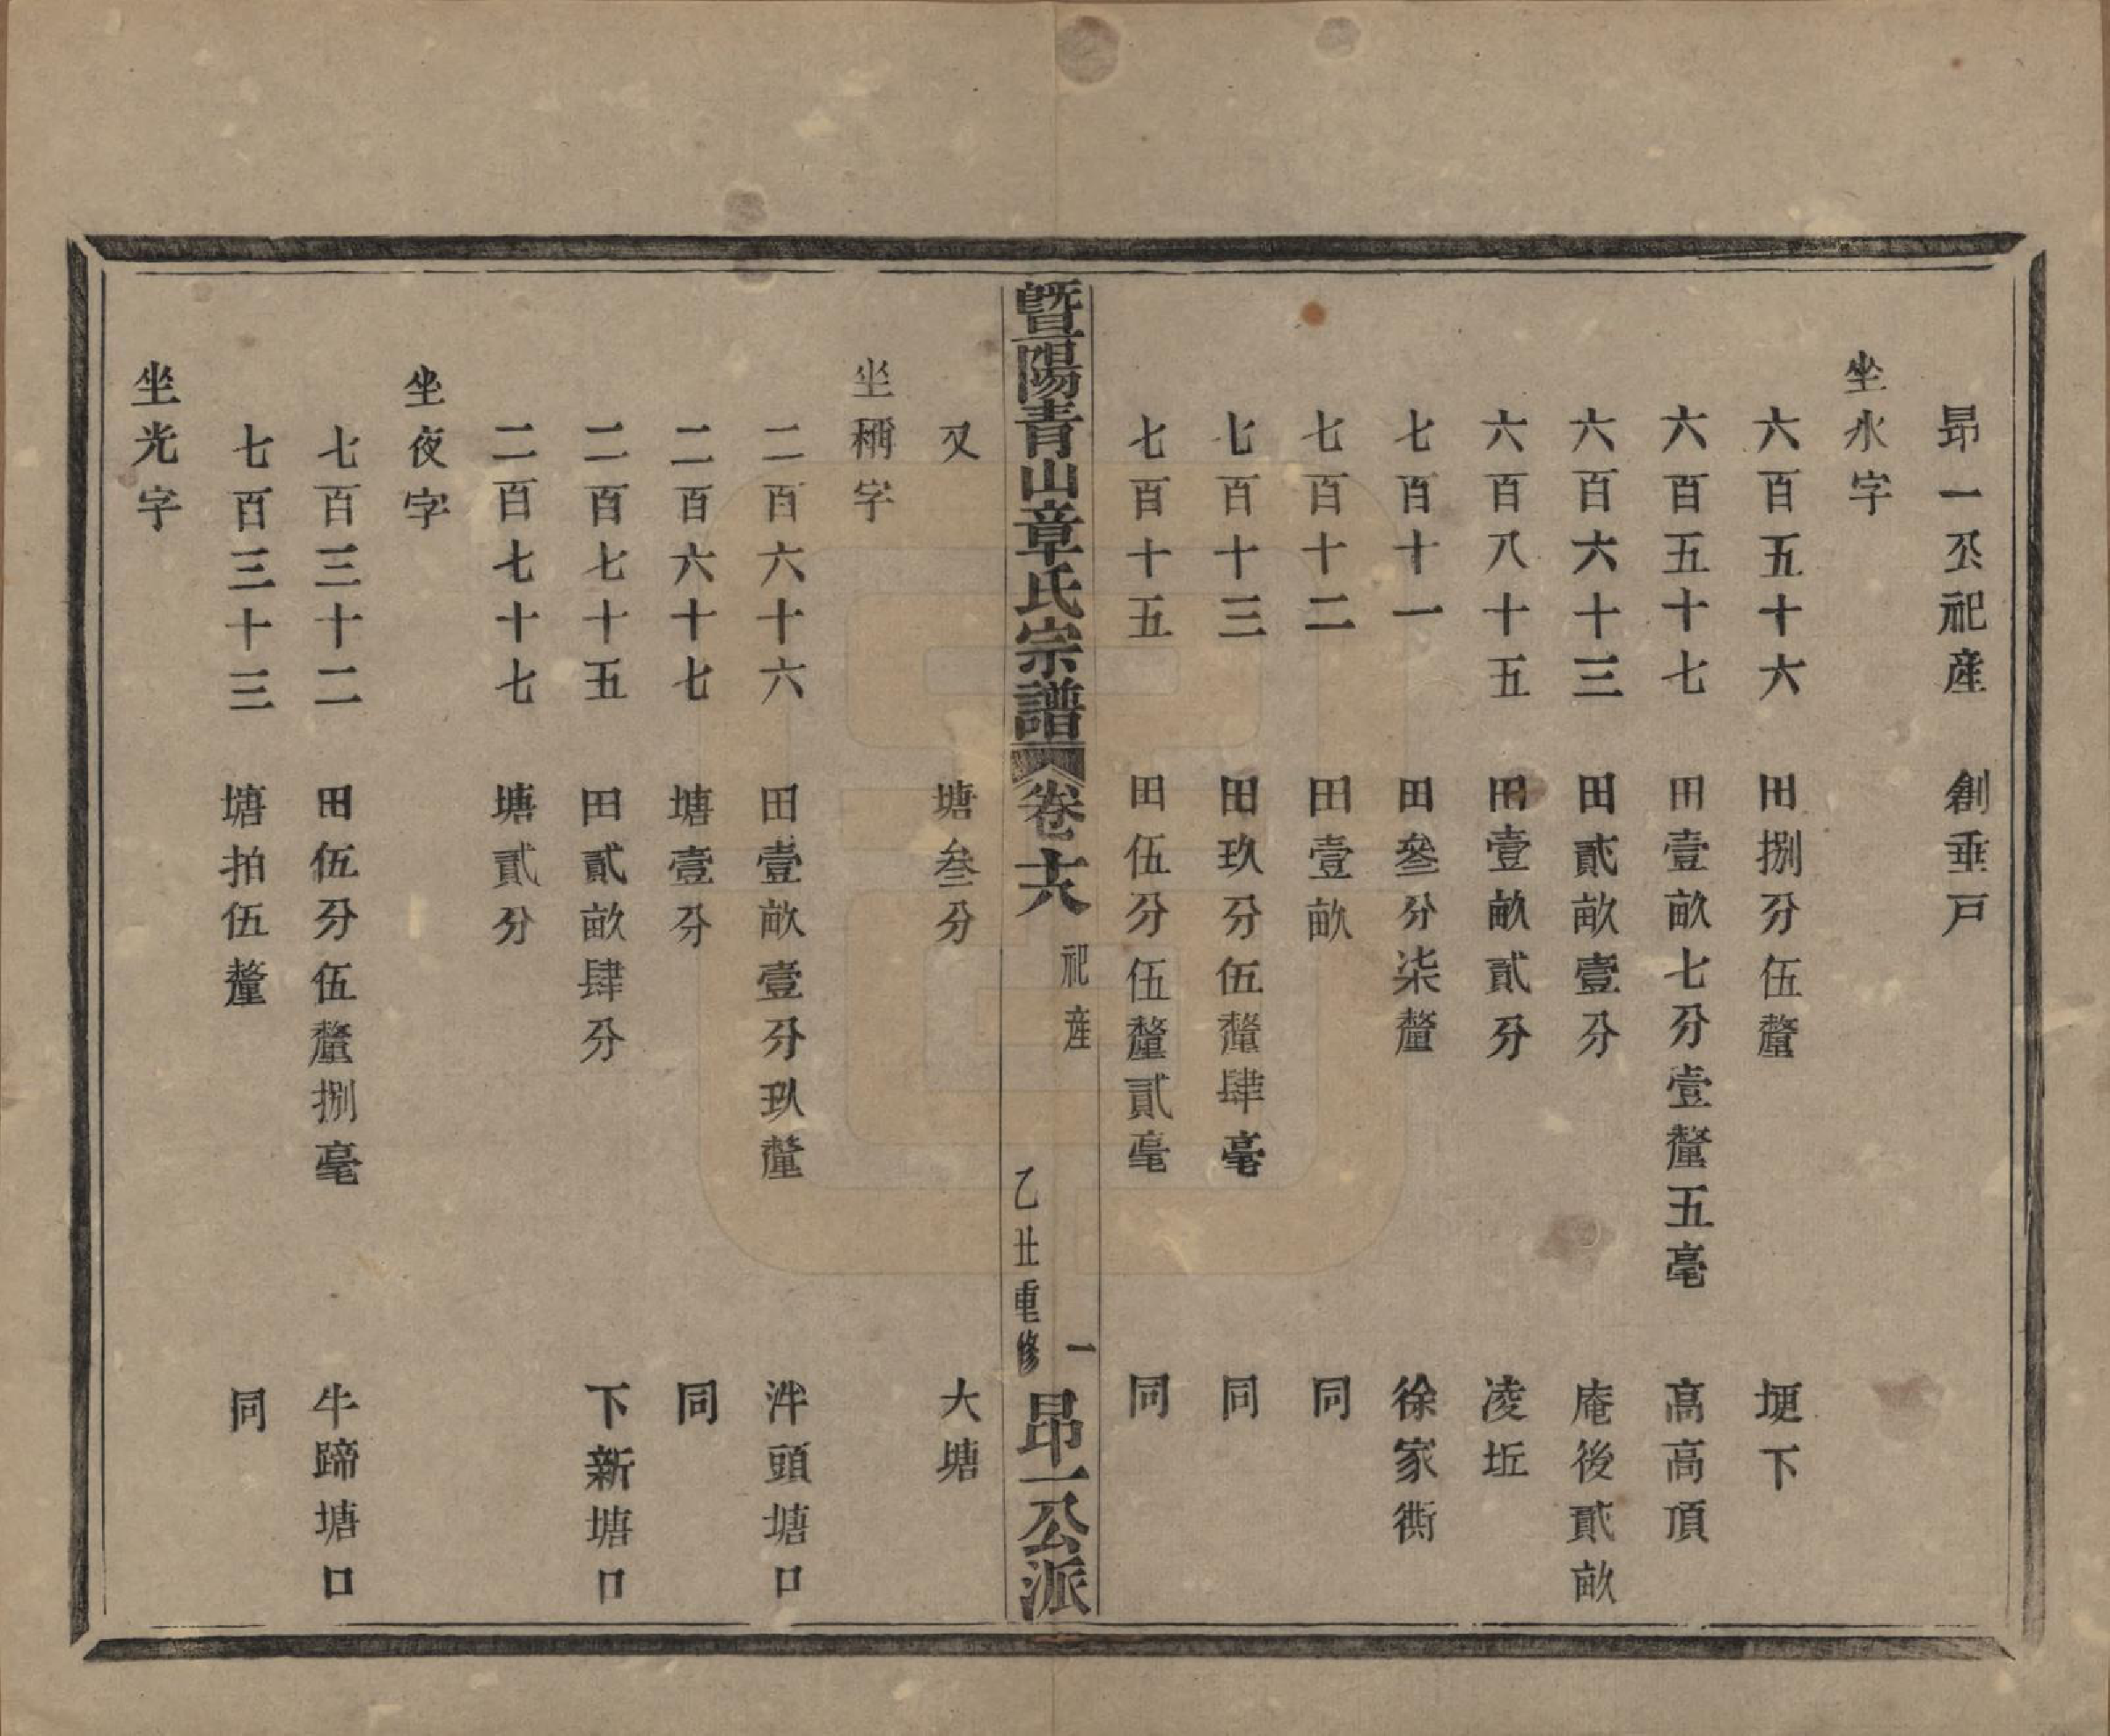 昻一公祀產　創垂戸
坐水字
六百五十六　田捌分伍釐　埂下
六百五十七　田壹畝七分壹釐五毫　高高頂
六百六十三　田貳畝壹分　庵後貳畝
六百八十五　田壹畝貳分　凌坵
七百十一　田叄分柒釐　徐家衖
七百十二　田壹畝　同
七百十三　田玖分伍釐肆毫　同
七百十五　田伍分伍釐貳毫　同
暨陽青山章氏宗譜　卷十六　祀產　一　乙丑重修　昻一公派
又　塘叄分　大塘
坐稱字
二百六十六　田壹畝壹分玖釐　泮頭塘口
二百六十七　塘壹分　同
二百七十五　田貳畝肆分　下新塘口
二百七十七　塘貳分
坐夜字
七百三十二　田伍分伍釐捌毫　牛蹄塘口
七百三十三　塘拍伍釐　同
坐光字